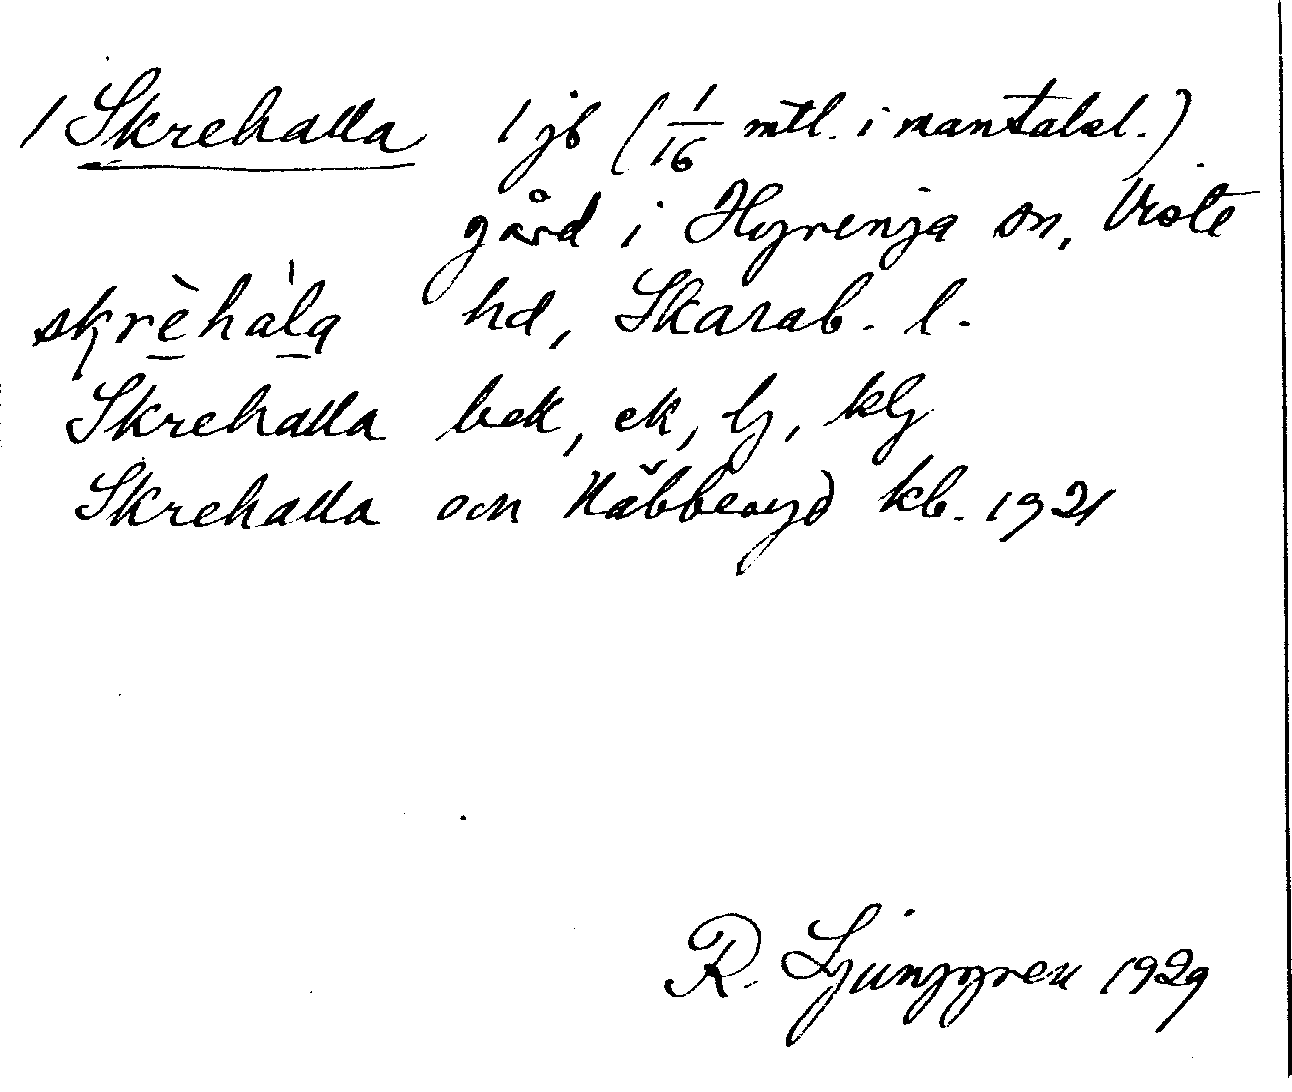 1 Skrehalla 1 jb (1/16 mtl. i mantalsl.)
gård i Hyrenja sn, Viste
skrèhàla hd, Skarab. l.
Skrehalla bek, ek, lj, klj
Skrehalla och Näbberyd kb. 1921
R. Ljunggren 1929